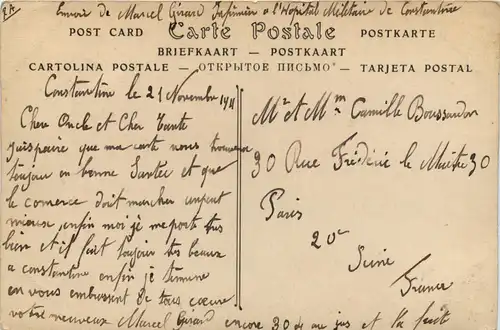 Envoi de Marcel Girard Infirmier a l'Hopital Militaire de Constantine
Carte Postale
POST CARD
POSTKARTE
BRIEFKAART — POSTKAART
CARTOLINA POSTALE — ОТКРЫТОЕ ПИСЬМО — TARJETA POSTAL
Constantine le 21 Novembre 1911
Cher Oncle et Cher Tante
J'aispaire que ma carte vous trouvera
toujour en bonne Santee et que
le comerce doit marcher unpeut
mieux, enfin moi je me porte tres
bien et il fait toujour tres beaux
a constantine enfin je termine
en vous embrassent de tous coeur
votre neuveux Marcel Girard encore 304 au jus et le fruit
Mr et Mm Camille Boussardon
30 Rue Frédéric le Maitre 30
Paris
20e
Seine
France